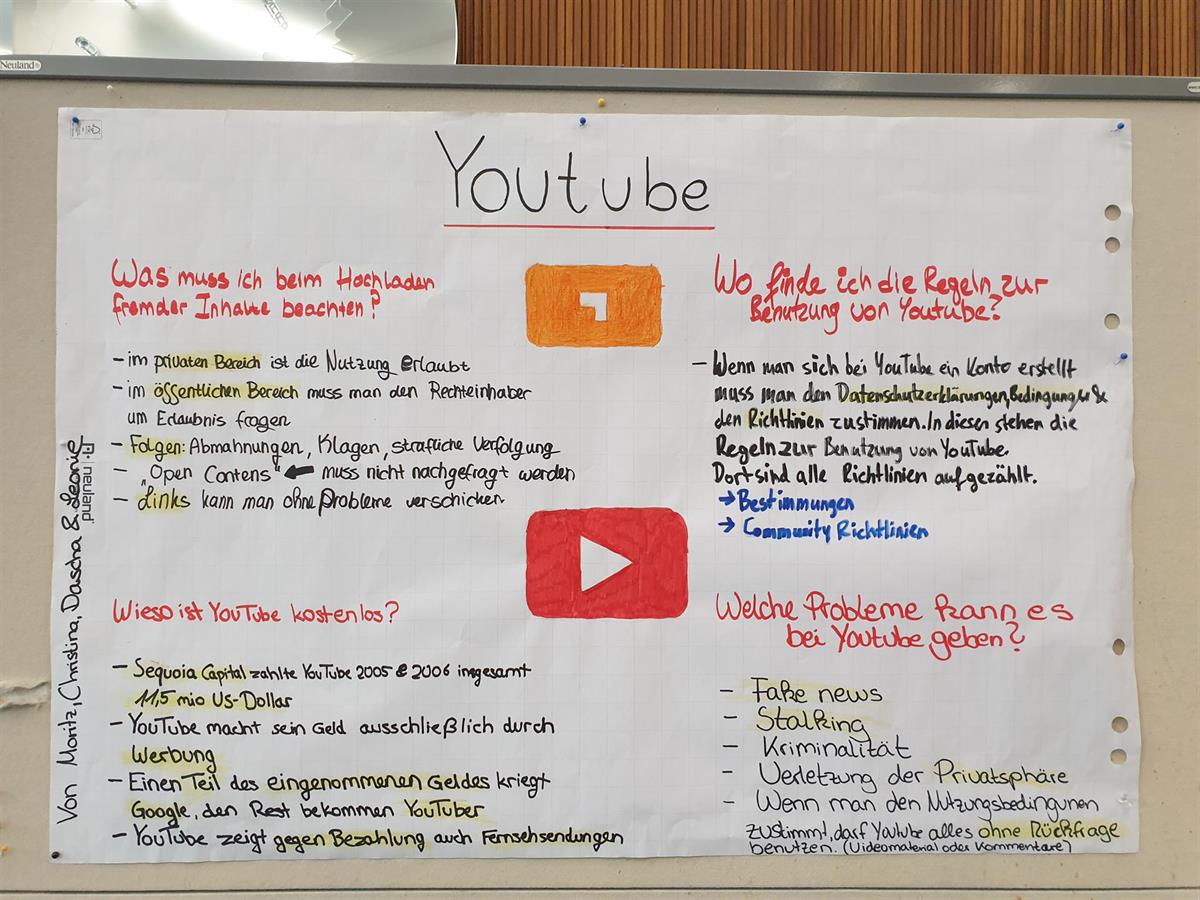 Neuland
Youtube
Was muss ich beim Hochladen
fremder Inhalte beachten?
- im privaten Bereich ist die Nutzung erlaubt
- im öffentlichen Bereich muss man den Rechteinhaber
um Erlaubnis fragen
- Folgen: Abmahnungen, Klagen, strafliche Verfolgung
- „Open Contens“ ← muss nicht nachgefragt werden
- Links kann man ohne Probleme verschicken.
Wo finde ich die Regeln zur
Benutzung von Youtube?
- Wenn man sich bei YouTube ein Konto erstellt
muss man den Datenschutzerklärungen, Bedingungen &
den Richtlinien zustimmen. In diesen stehen die
Regeln zur Benutzung von YouTube.
Dort sind alle Richtlinien aufgezählt.
→ Bestimmungen
→ Community Richtlinien
Wieso ist YouTube kostenlos?
- Sequoia Capital zahlte YouTube 2005 & 2006 insgesamt
11,5 mio US-Dollar
- YouTube macht sein Geld ausschließlich durch
Werbung
- Einen Teil des eingenommenen Geldes kriegt
Google, den Rest bekommen YouTuber
- YouTube zeigt gegen Bezahlung auch Fernsehsendungen
Welche Probleme kann es
bei Youtube geben?
- Fake news
- Stalking
- Kriminalität
- Verletzung der Privatsphäre
- Wenn man den Nutzungsbedingunen
zustimmt, darf Youtube alles ohne Rückfrage
benutzen. (Videomaterial oder Kommentare)
Von Moritz, Christina, Dascha & Leonie
neuland